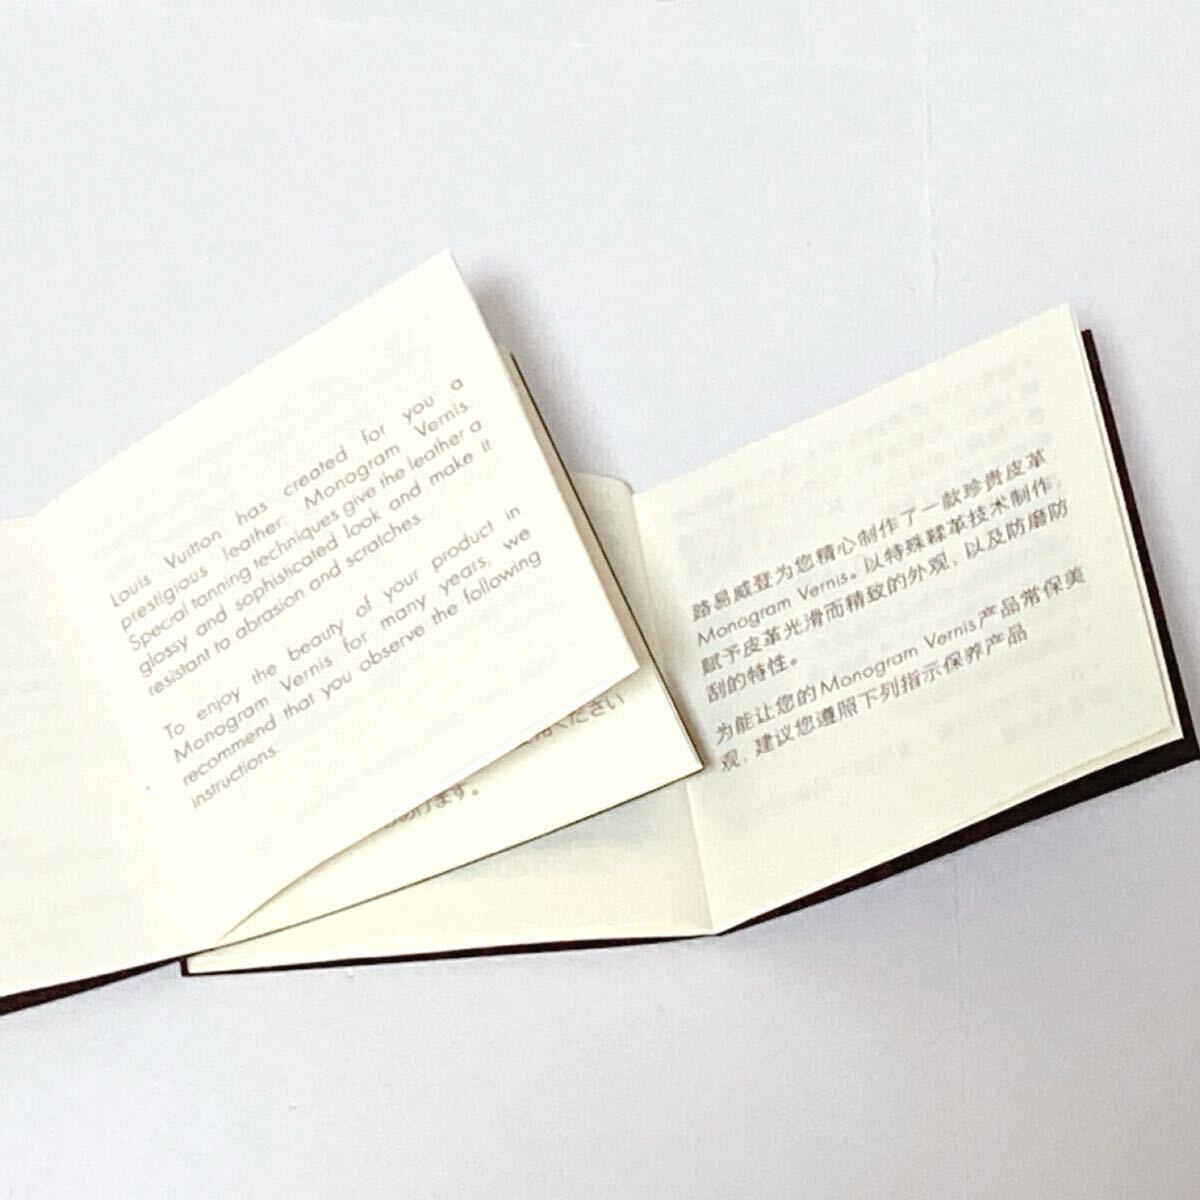 Louis Vuitton has created for you a
prestigious leather: Monogram Vernis.
Special tanning techniques give the leather a
glossy and sophisticated look and make it
resistant to abrasion and scratches.
To enjoy the beauty of your product in
Monogram Vernis for many years, we
recommend that you observe the following
instructions:
ください
ます。
路易威登为您精心制作了一款珍贵皮革：
Monogram Vernis。以特殊鞣革技术制作，
赋予皮革光滑而精致的外观，以及防磨防
刮的特性。
为能让您的Monogram Vernis产品常保美
观，建议您遵照下列指示保养产品